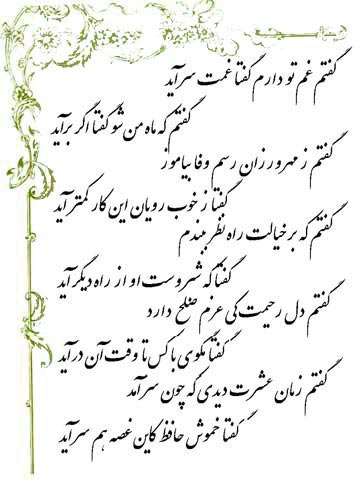 گفتم غم تو دارم گفتا غمت سرآید
گفتم که ماه من شو گفتا اگر برآید
گفتم ز مهرورزان رسم وفا بیاموز
گفتا ز خوب رویان این کار کمتر آید
گفتم که بر خیالت راه نظر ببندم
گفتا که شبروست او از راه دیگر آید
گفتم دل رحیمت کی عزم صلح دارد
گفتا مگوی با کس تا وقت آن درآید
گفتم زمان عشرت دیدی که چون سرآمد
گفتا خموش حافظ کاین غصه هم سرآید